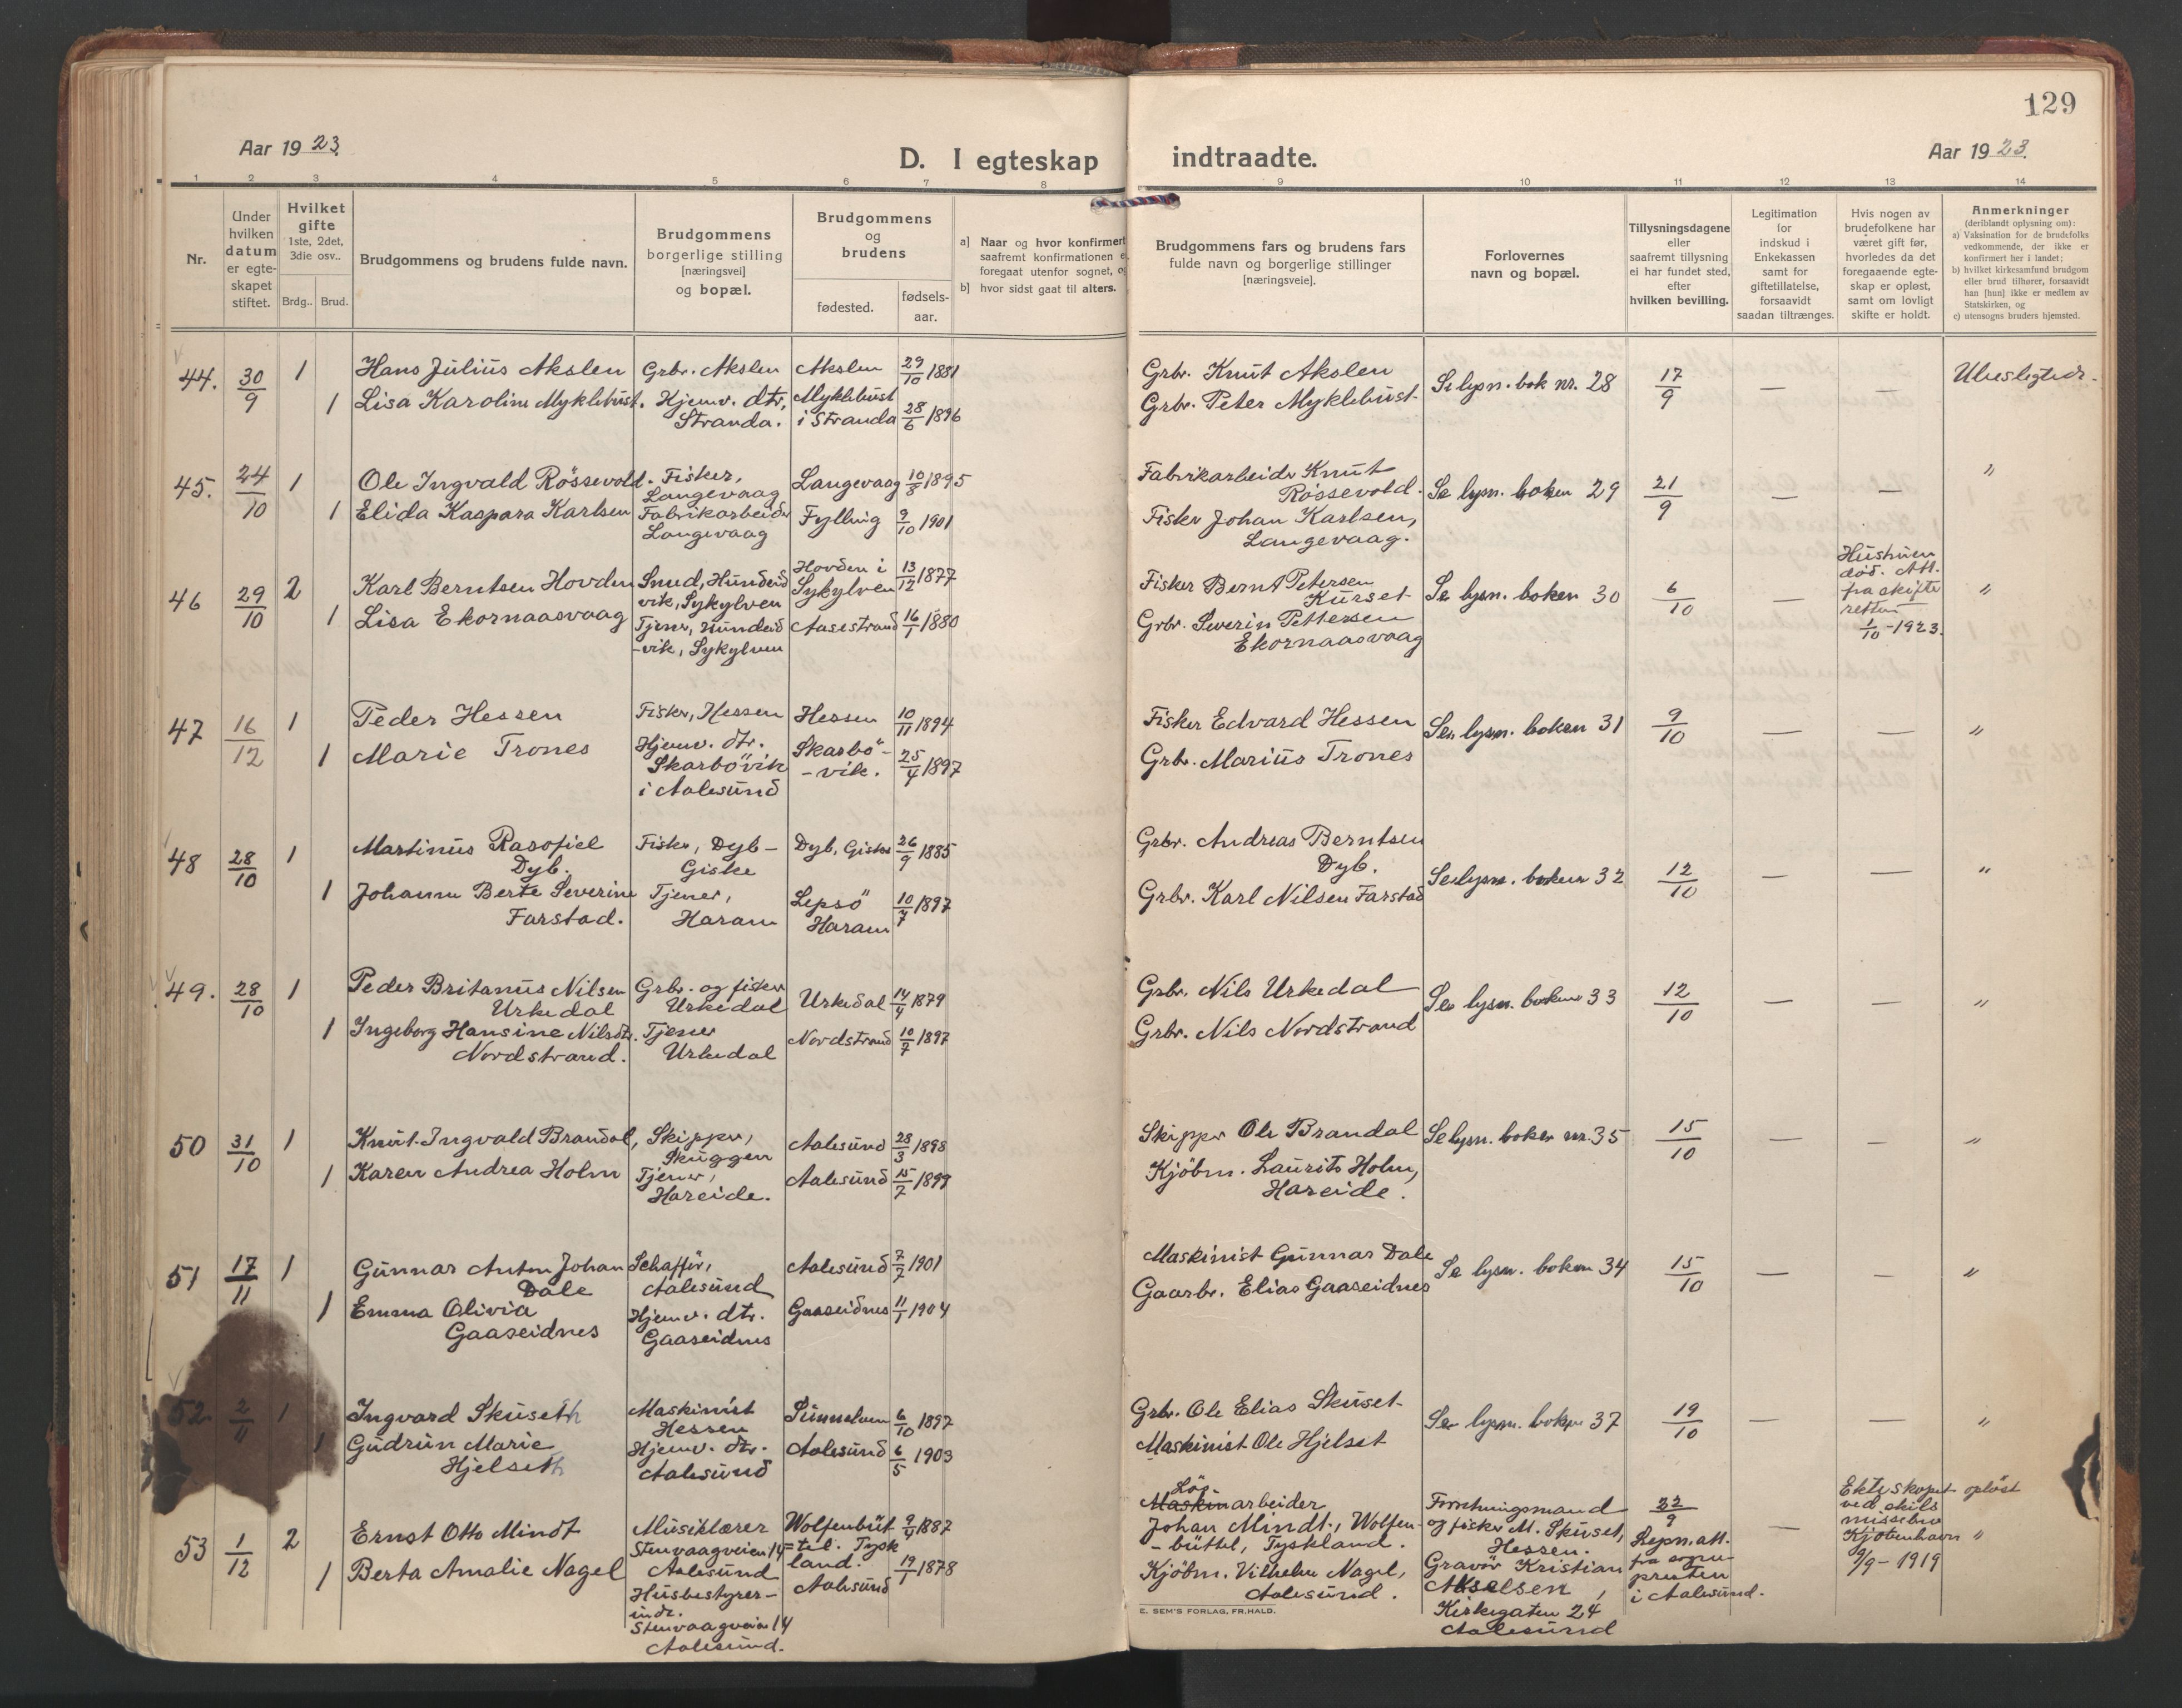 129
Aar 1923.
D. I egteskap indtraadte.
Aar 1923.
1 2 3 4 5 6 7 8 9 10 11 12 13 14
Nr.
Under hvilken datum er egte-skapet stiftet.
Hvilket gifte
1ste, 2det, 3die osv..
Brdg.. Brud.
Brudgommens og brudens fulde navn.
Brudgommens borgerlige stilling [næringsvei] og bopæl.
Brudgommens og brudens
fødested.
fødsels-aar.
a] Naar og hvor konfirmert saafremt konfirmationen foregaat utenfor sognet,
b] hvor sidst gaat til alters.
Brudgommens fars og brudens fars
fulde navn og borgerlige stillinger
[næringsveie].
Forlovernes
navn og bopæl.
Tillysningsdagene
eller
saafremt tillysning
ei har fundet sted,
efter
hvilken bevilling.
Legitimation
for
indskud i
Enkekassen
samt for
giftetillatelse,
forsaavidt
saadan tiltrænges.
Hvis nogen av
brudefolkene har
været gift før,
hvorledes da det
foregaaende egte-
skap er opløst,
samt om lovligt
skifte er holdt.
Anmerkninger
(deriblandt oplysning om):
a) Vaksination for de brudefolks
vedkommende, der ikke er
konfirmert her i landet;
b) hvilket kirkesamfund brudgom
eller brud tilhører, forsaavidt
han [hun] ikke er medlem av
Statskirken, og
c) utensogns bruders hjemsted.
44. 30/9 1 Hans Julius Akslen Grbr. Akslen Akslen 29/10 1881 Grbr. Knut Akslen Se lysn. bok nr. 28 17/9 — — Ubeslegtede.
1 Lisa Karoline Myklebust. Hjemv. dtr, Stranda. Myklebust i Stranda 28/6 1896 Grbr. Peter Myklebust
45. 24/10 1 Ole Ingvald Rössevold. Fisker, Langevaag Langevaag 10/8 1895 Fabrikarbeider Knut Rössevold. Se lysn. boken 29 21/9 — — "
1 Elida Kaspara Karlsen Fabrikarbeider Langevaag Fylling 9/10 1901 Fisker Johan Karlsen, Langevaag.
46 29/10 2 Karl Berntsen Hovden Smed, Hundeidvik, Sykylven Hovden i Sykylven 13/12 1877 Fisker Bernt Petersen Kurset Se lysn. boken 30 6/10 — Hustruen död. Att. fra skifteretten 1/10-1923. "
1 Lisa Ekornaasvaag Tjener, Hundeid-vik, Sykylven Aasestrand 16/1 1880 Grbr. Severin Pettersen Ekornaasvaag
47 16/12 1 Peder Hessen Fisker, Hessen Hessen 10/11 1894 Fisker Edvard Hessen Se lysn. boken 31 9/10 — — "
1 Marie Trones Hjemv. dtr. Skarbövik i Aalesund Skarbö-vik. 25/4 1897 Grbr. Marius Trones
48 28/10 1 Martinus Rasofiel Dyb. Fisker, Dyb-Giske Dyb, Giske 26/9 1885 Grbr. Andreas Berntsen Dyb. Se lysn. boken 32 12/10 — — "
1 Johanne Berte Severine Farstad. Tjener, Haram Lepsö Haram 10/7 1897 Grbr. Karl Nilsen Farstad
49. 28/10 1 Peder Britanus Nilsen Urkedal Grbr. og fisker Urkedal Urkedal 14/4 1879 Grbr. Nils Urkedal Se lysn. boken 33 12/10 — — "
1 Ingeborg Hansine Nilsdtr. Nordstrand. Tjener Urkedal Nordstrand 10/7 1897 Grbr. Nils Nordstrand
50 31/10 1 Knut Ingvald Brandal, Skipper, Skuggen Aalesund 28/3 1898 Skipper Ole Brandal Se lysn. boken nr. 35 15/10 — — "
1 Karen Andrea Holm Tjener, Hareide. Aalesund 15/7 1899 Kjöbm. Laurits Holm, Hareide.
51 17/11 1 Gunnar Anton Johan Dale Schafför, Aalesund Aalesund 7/7 1901 Maskinist Gunnar Dale Se lysn. boken 34 15/10 — — "
1 Emma Olivia Gaaseidnes Hjemv. dtr. Gaaseidnes Gaaseidnes 11/1 1904 Gaarbr. Elias Gaaseidnes
52 2/11 1 Ingvard Skuseth Maskinist Hessen Sunnelven 6/10 1897 Grbr. Ole Elias Skuset Se lysn. boken 37 19/10 — — "
1 Gudrun Marie Hjelseth Hjemv. dtr. Aalesund Aalesund 6/5 1903 Maskinist Ole Hjelset
53 1/12 2 Ernst Otto Mindt Musiklærer Stenvaagveien 14 Aalesund Wolfenbüt=tel. Tyskland. 9/4 1887 Lös Maskinarbeider Johan Mindt, Wolfen-büttel, Tyskland. Forretningsmand og fisker M. Skuset, Hessen. 22/9 Lysn. att. fra sogne-presten i Aalesund. — Ekteskapet oplöst ved skilsmissebrev Kjöbenhavn 9/9-1919 "
1 Berta Amalie Nagel Husbestyrer-inde. Stenvaagveien 14 Aalesund. Aalesund 19/1 1878 Kjöbm. Vilhelm Nagel, Aalesund. Gravör Kristian Akselsen, Kirkegaten 24 Aalesund
E. SEM'S FORLAG, FR.HALD.